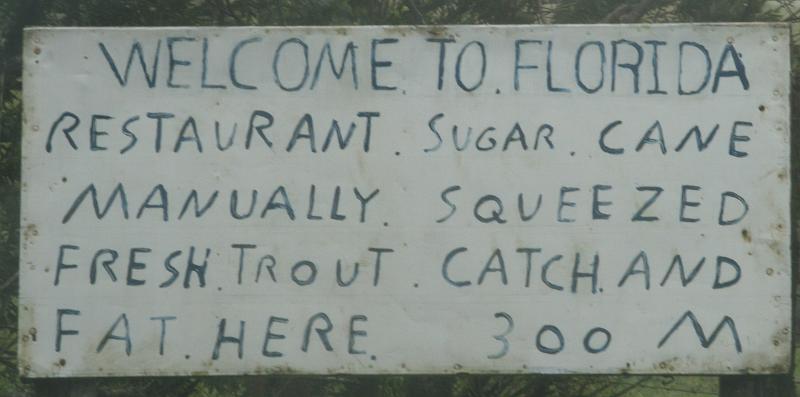 WELCOME. TO. FLORIDA
RESTAURANT. SUGAR. CANE
MANUALLY. SQUEEZED
FRESH. TROUT. CATCH. AND
FAT. HERE. 300 M